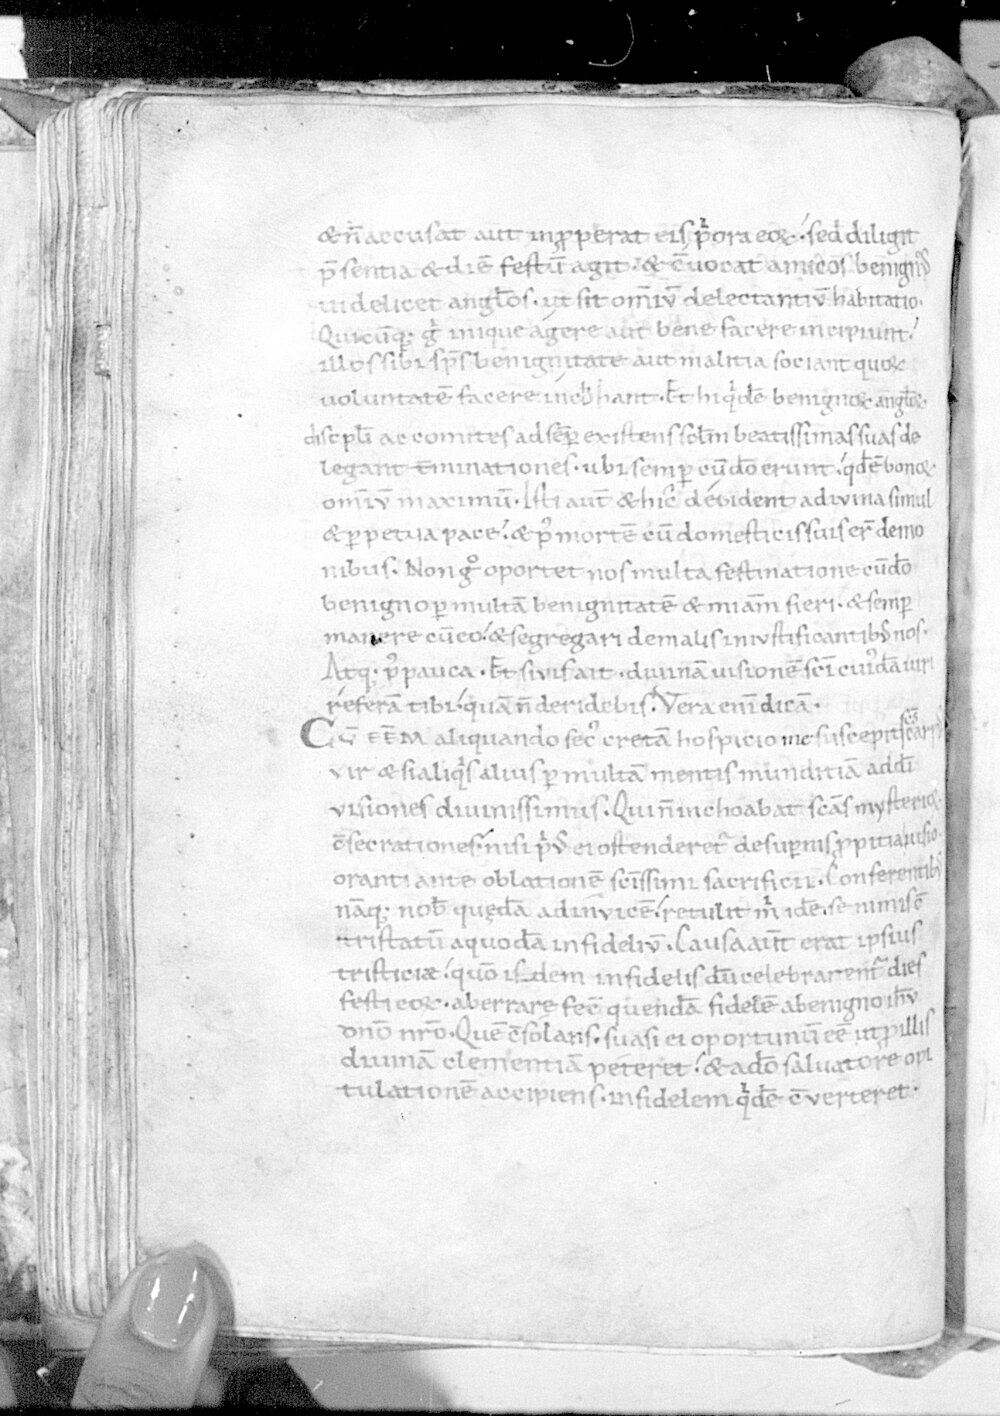 & n̄ accusat aut inp̱perat eis p̄ora eoꝝ. sed diligit
p̄sentia & diē festū agit. & c̄uocat amicos benignos
uidelicet angl̄os. ut sit om̄iū delectantiū habitatio.
Quicūq; gͥ inique agere aut bene facere incipiunt.
illos sibi sp̄s benignitate aut malitia sociant quoꝝ
voluntatē facere inchoant. Et hi qͥdē benignoꝝ angl̄oꝝ
discipl̄i ac comites ad sēp̱ existens sol̄m beatissimas suas de
legant t̄minationes. ubi semp̱ cū dō erunt. qͥdē bonoꝝ
om̄iū maximū. Isti aut̄ & hic debident a divina simul
& p̱petua pace. & pͦ mortē cū domesticis suis er̄ demo
nibus. Non gͦ oportet nos multa festinatione cū dō
benigno p̱ multā benignitatē & miam̄ fieri. & semp̱
manere cū eo. & segregari de malis iniustificantibꝰ nos.
Atq; pͦ pauca. Et si vis ait. divinā visionē sc̄i cuiꝰdā viri
referā tibi. quā n̄ deridebis. Vera enī dicā.
Cū EEDA aliquando sec̄ cretā hospicio me suscepit sc̄s carpꝰ
vir & si aliqͥs alius p̱ multā mentis munditiā ad dī
visiones divinissimus. Qui n̄ inchoabat scās mysterioꝝ
c̄secrationes. nisi pͥꝰ ei ostenderet̄ desup̱nis p̱pitia visio.
oranti ante oblationē sc̄issimi sacrificii. Conferentibꝰ
nāq; nob̄ quędā ad invicē. retulit mͥ idē. se nimis c̄
tristatū a quodā infideliū. Causa aut̄ erat ipsius
tristiciæ. quō isdem infidelis dū celebrarent̄ dies
festi eoꝝ. aberrare fec̄ quendā fidelē a benigno ih̄u
dn̄o nr̄o. Quē c̄solans. suasi ei oportunū eē ut p̱ illis
divinā clementiā peteret. & a dō salvatore opi
tulationē accipiens. infidelem qͥdē c̄verteret.